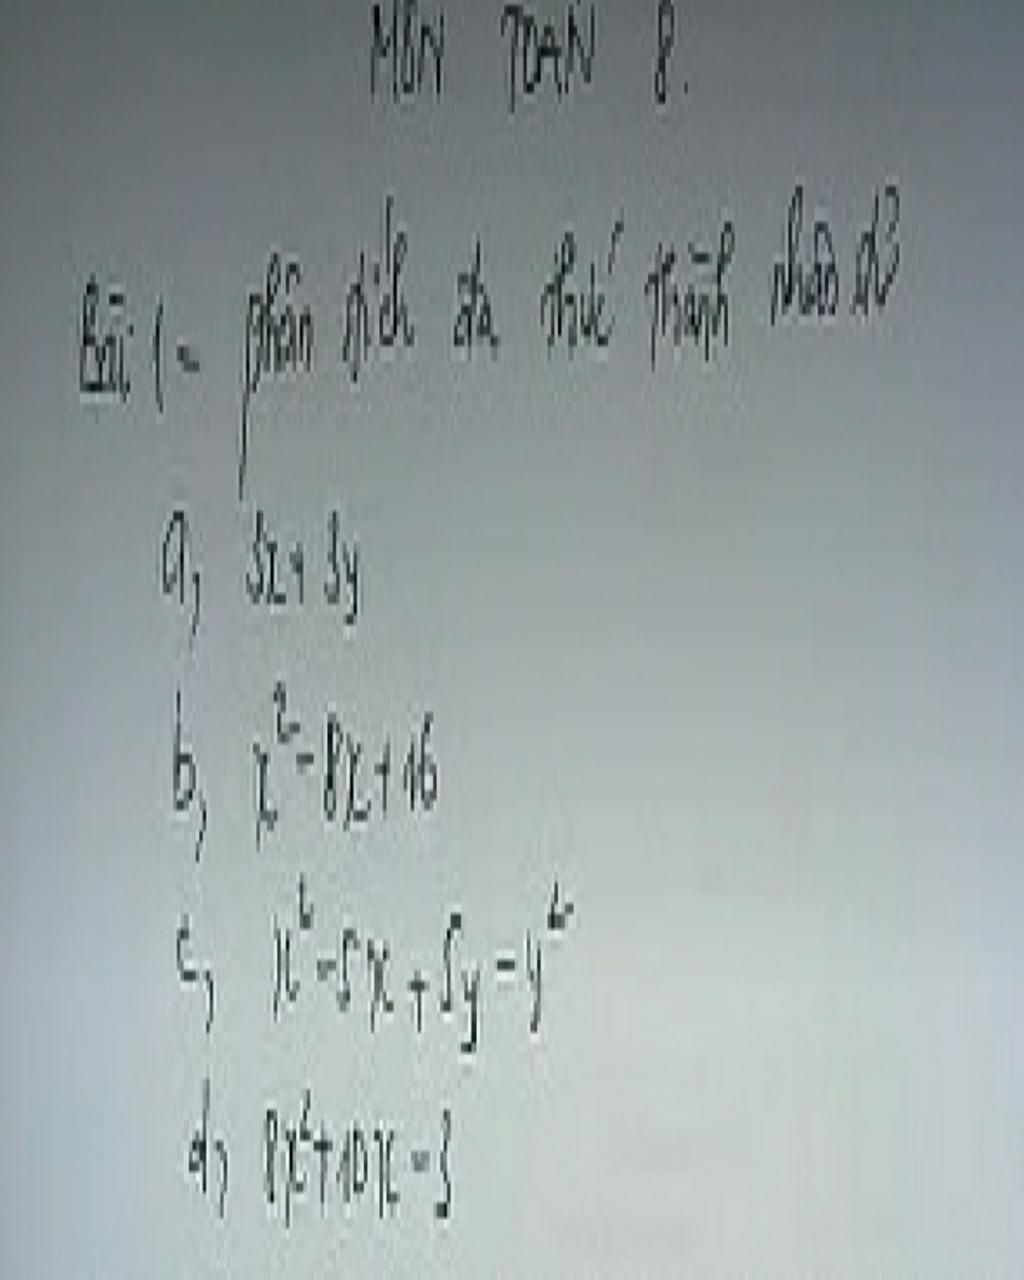 MÔN TOÁN 8.
Bài 1 = phân tích đa thức thành nhân tử
a, 3x + 3y
b, x² - 8x + 16
c, x² - 5x + 5y - y²
d, 8x² + 10x - 3